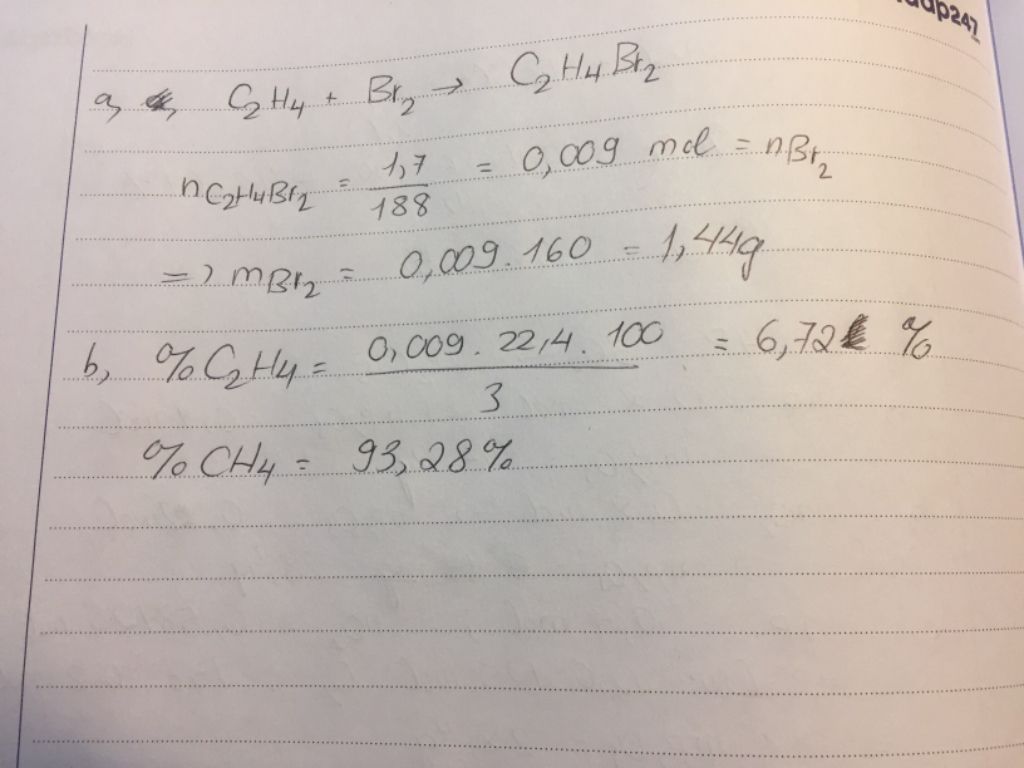 a, C₂H₄ + Br₂ → C₂H₄Br₂
nC₂H₄Br₂ = 1,7/188 = 0,009 mol = nBr₂
=> mBr₂ = 0,009.160 = 1,44g
b, %C₂H₄ = 0,009.22,4.100/3 = 6,72 %
%CH₄ = 93,28%